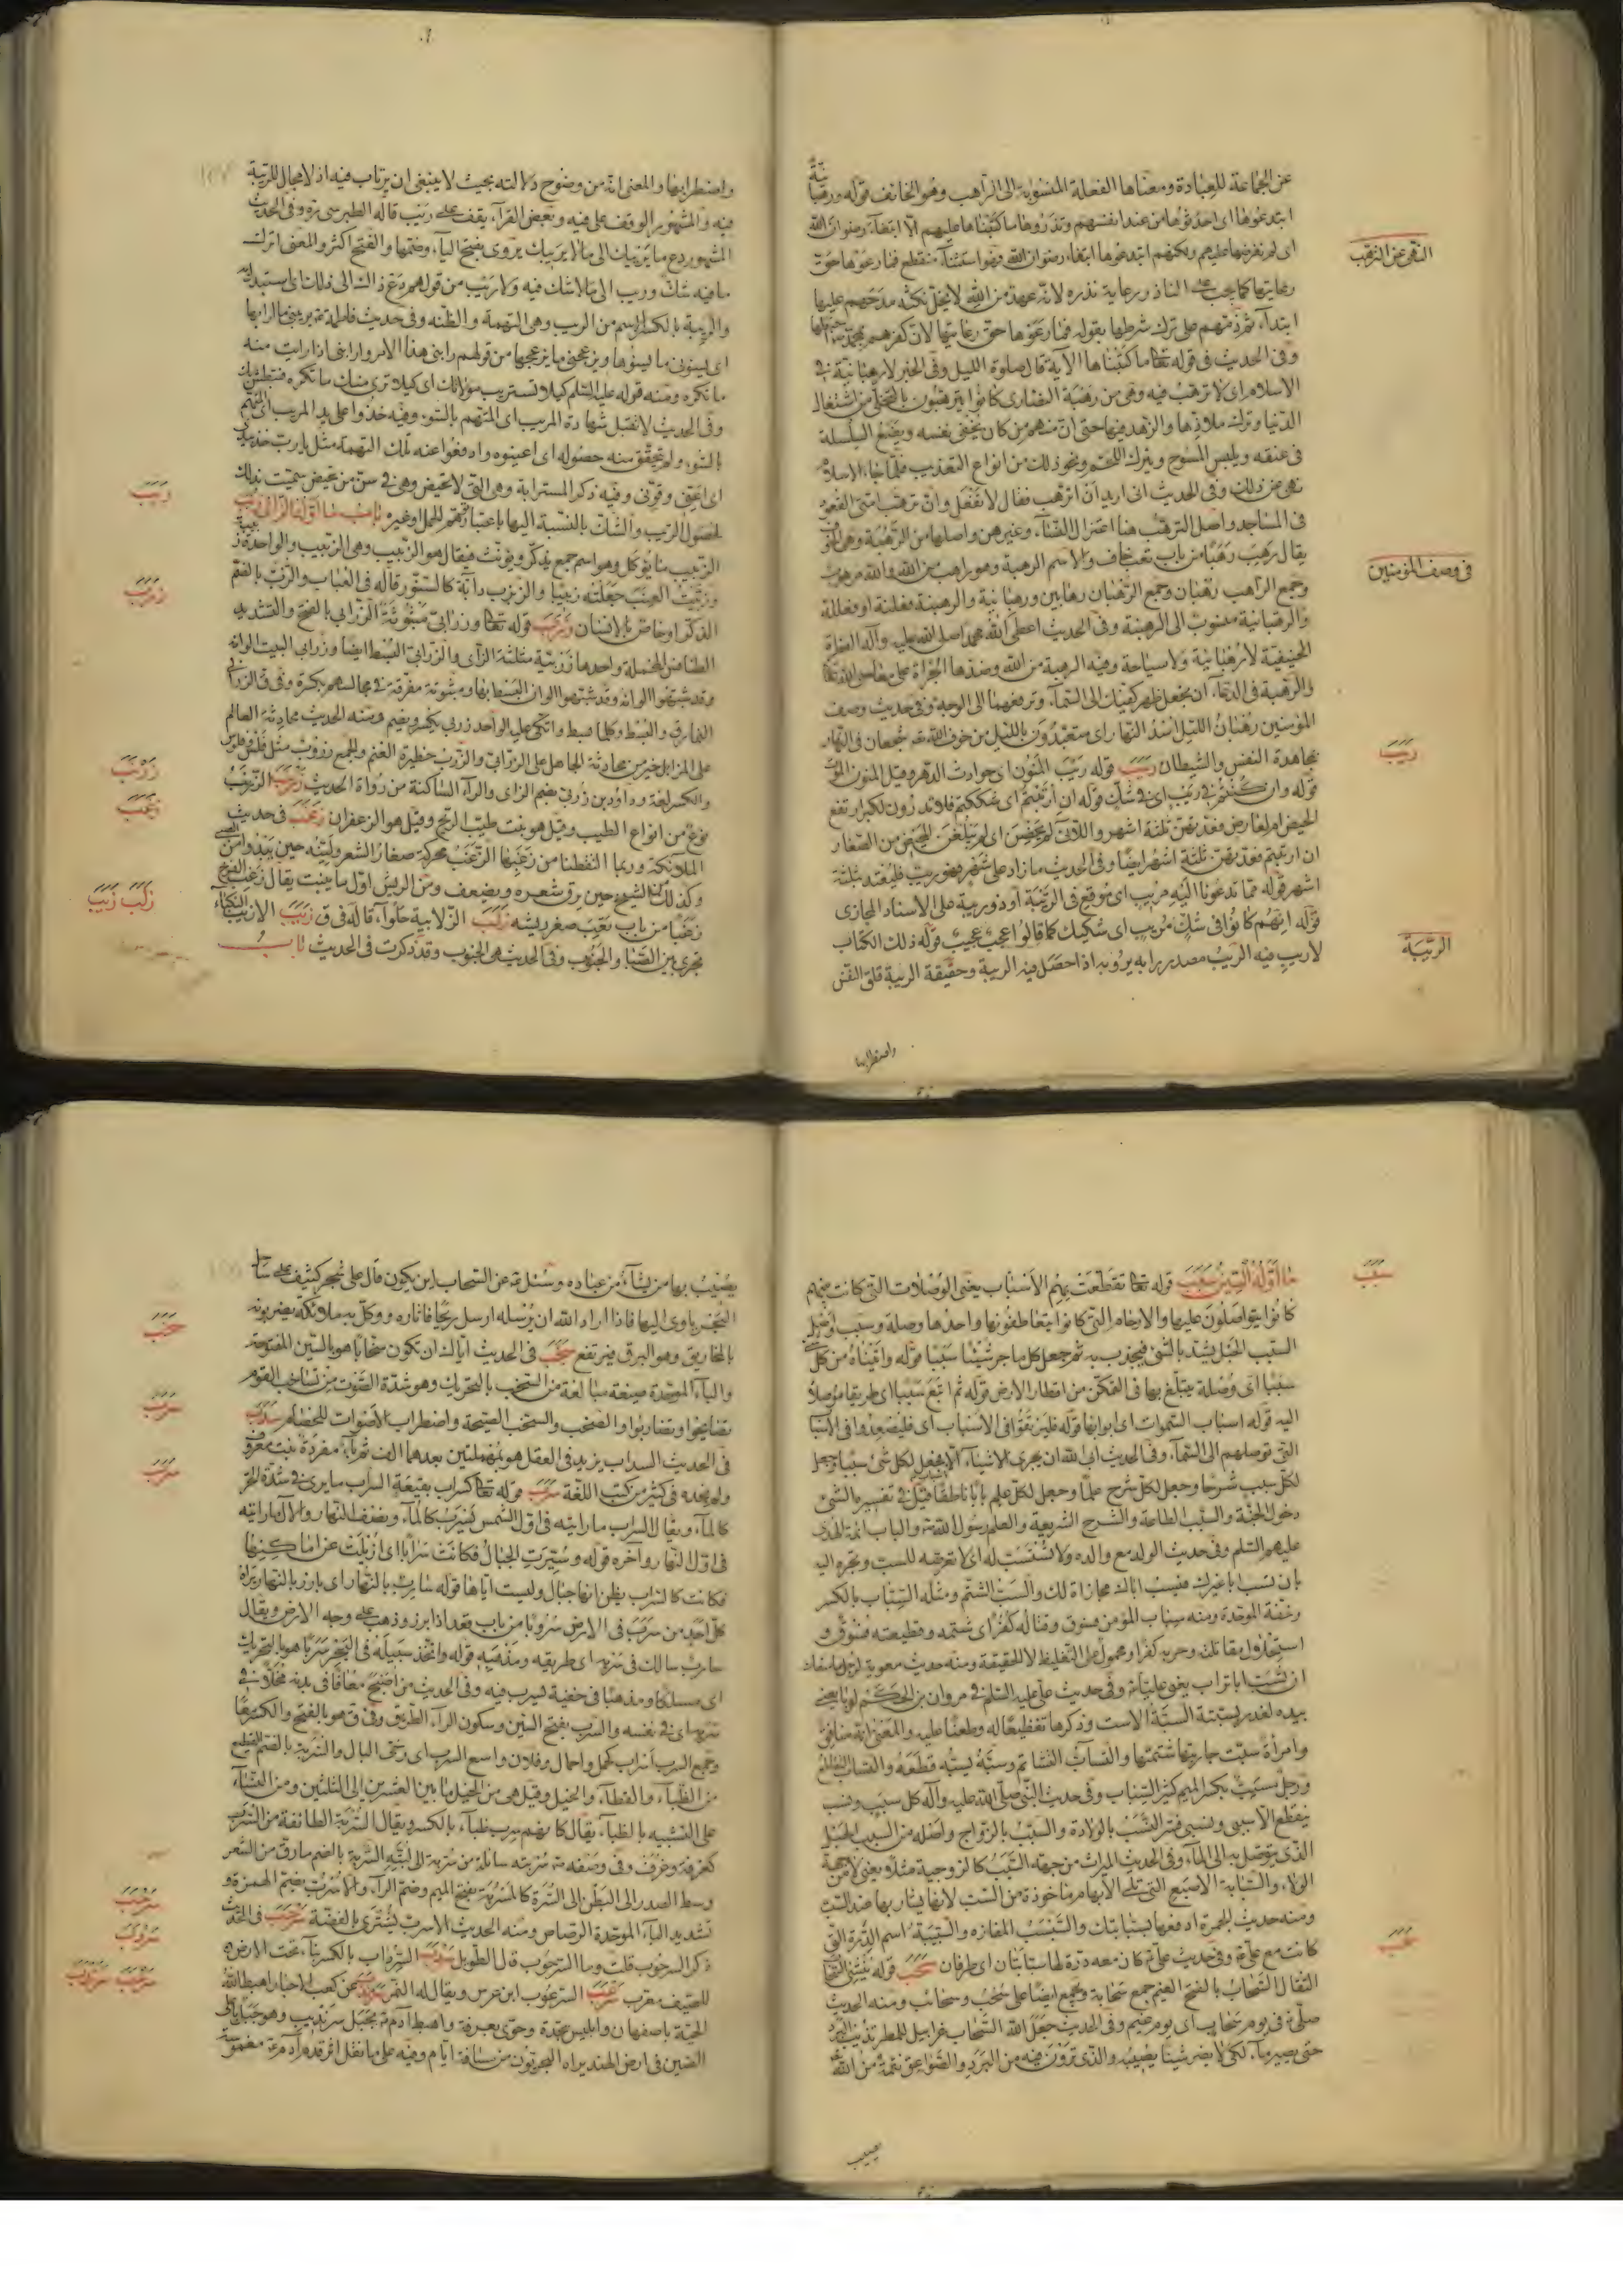 عن الجماعة للعبادة ومعناها الفعلة المنسوبة الى الراهب وهو الخائف قوله ورهبانية
ابتدعوها اى احدثوها من عند انفسهم ونذروها ما كتبناها عليهم الا ابتغاء رضوان الله
اى لم نفرضها عليهم ولكنهم ابتدعوها ابتغاء رضوان الله وهو استثناء منقطع فما رعوها حق
رعايتها كما يجب على الناذر رعاية نذره لانه عهد من الله لا يحل نكثه مدحهم عليها
ابتداء ثم ذمهم على ترك شرطها بقوله فما رعوها حق رعايتها لان كفرهم بمحمد
وفى الحديث فى قوله تعا ما كتبناها الآية قال صلوة الليل وفى الخبر لا رهبانية فى
الاسلام اى لا ترهب فيه وهى من رهبنة النصارى كانوا يترهبون بالتخلى من اشتغال
الدنيا وترك ملاذها والزهد فيها حتى ان منهم من كان يخصى نفسه ويضع السلسلة
فى عنقه ويلبس المسوح ويترك اللحم ونحو ذلك من انواع التعذيب فلما جاء الاسلام
نهى عن ذلك وفى الحديث انى اريد ان اترهب فقال لا تفعل وان ترهب امتى القعود
فى المساجد واصل الترهب هنا اعتزال النساء وغيرهن واصلها من الرهبة وهى الخوف
يقال رهب رهبا من باب تعب خاف والاسم الرهبة وهو راهب من الله والله مرهوب
وجمع الراهب رهبان وجمع الرهبان رهابين ورهبانية والرهبنة فعلنة او فعللة
والرهبانية منسوب الى الرهبنة وفى الحديث اعطى الله محمدا صلى الله عليه وآله الفطرة
الحنيفية لا رهبانية ولا سياحة وفيه الرهبة من الله وضدها الجرأة على معاصى الله تعا
والرهبة فى الدعاء ان يجعل ظهر كفيك الى السماء وترفعهما الى الوجه وفى حديث وصف
المؤمنين رهبان الليل اسد النهار اى متعبدون بالليل من خوف الله تعـ شجعان فى النهار
بمجاهدة النفس والشيطان ريب قوله ريب المنون اى حوادث الدهر وقيل المنون الموت
قوله وان كنتم فى ريب اى فى شك قوله ان ارتبتم اى شككتم فلا تدرون لكبر ارتفع
الحيض ام لعارض فعدتهن ثلثة اشهر واللائى لم يحضن اى لم يبلغن المحيض من الصغار
ان ارتبتم فعدتهن ثلثة اشهر ايضا وفى الحديث ما زاد على شهر فهو ريب فليعتد بثلثة
اشهر قوله مما تدعونا اليه مريب اى موقع فى الريبة او ذو ريبة على الاسناد المجازى
قوله انهم كانوا فى شك مريب اى شكيك كما قالوا عجب عجيب قوله ذلك الكتاب
لا ريب فيه الريب مصدر رابه يريبه اذا حصل فيه الريبة وحقيقة الريبة قلق النفس
واضطرابها
النهى عن الترهب
فى وصف المؤمنين
ريب
الريبة
واضطرابها والمعنى انه من وضوح دلالته بحيث لا ينبغى ان يرتاب فيه اذ لا مجال للريبة
فيه والمشهور الوقف على فيه وبعض القراء يقف على ريب قاله الطبرسى ره وفى الحديث
المشهور دع ما يريبك الى ما لا يريبك يروى بفتح الياء وضمها والفتح اكثر والمعنى اترك
ما فيه شك وريب الى ما لا شك فيه ولا ريب من قولهم دع ذاك الى ذلك اى استبدله
والريبة بالكسر الاسم من الريب وهى التهمة والظنة وفى حديث فاطمة يريبنى ما رابها
اى يسوئنى ما يسوئها ويزعجنى ما يزعجها من قولهم رابنى هذا الامر وارابنى اذا رايت منه
ما تكره ومنه قوله عليه السلم كيلا تستريب مولاتك اى كيلا ترى منك ما تكره
وفى الحديث لا تقبل شهادة المريب اى المتهم بالسوء وفيه خذوا على يد المريب اى المتهم
بالسوء ولم يتحقق منه حصوله اى اعينوه وادفعوا عنه تلك التهمة
وفيه ذكر المسترابة وهى التى لا تحيض وهى فى سن من تحيض سميت بذلك
لحصول الريب والشك بالنسبة اليها باعتبار توهم الحمل او غيره باب ما اوله الزاى زبب
الزبيب ما يؤكل وهو اسم جمع يذكر ويؤنث فيقال هو الزبيب وهى الزبيب والواحدة زبيبة
وزببت العنب جعلته زبيبا والزبزب دابة كالسنور قاله فى العباب والزب بالضم
الذكر او خاص بالانسان زرب قوله تعا وزرابى مبثوثة الزرابى بالفتح والتشديد
الطنافس المخملة واحدها زربية مثلثة الزاى والزرابى البسط ايضا وزرابى البيت الوانه
النمارق والبسط وكلما بسط واتكى عليه الواحد زربى بكسر ويضم ومنه الحديث محادثة العالم
على المزابل خير من محادثة الجاهل على الزرابى والزرب حظيرة الغنم والجمع زروب مثل فلس وفلوس
والكسر لغة وداود بن زربى بضم الزاى والراء الساكنة من رواة الحديث زرنب الزرنب
نوع من انواع الطيب وقيل هو نبت طيب الريح وقيل هو الزعفران زغب فى حديث
الملائكة وربما التقطنا من زغبها الزغب محركة صغار الشعر ولينه حين يبدو من الصبى
وكذلك الشيخ حين يرق شعره ويضعف ومن الريش اول ما ينبت يقال زغب الفرخ
زغبا من باب تعب صغر ريشه زلب الزلابية حلواء قاله فى ق زيب الازيب النكباء
تجرى بين الصبا والجنوب وفى الحديث هى الجنوب وقد ذكرت فى الحديث باب
زبب
زرب
زرنب
زغب
زلب زيب
ما اوله السين سبب قوله تعا تقطعت بهم الاسباب يعنى الوصلات التى كانت بينهم
كانوا يتواصلون عليها والارحام التى كانوا يتعاطفون بها واحدها وصلة وسبب واصل
السبب الحبل يشد بالشئ فيجذب به ثم جعل كل ما جر شيئا سببا قوله وآتيناه من كل شئ
سببا اى وصلة يتبلغ بها فى التمكن من اقطار الارض قوله ثم اتبع سببا اى طريقا موصلا
اليه قوله اسباب السموات اى ابوابها قوله فليرتقوا فى الاسباب اى فليصعدوا فى الاسباب
التى توصلهم الى السماء وفى الحديث ابى الله ان يجرى الاشياء الا بالاسباب فجعل لكل شئ سببا وجعل
لكل سبب شرحا وجعل لكل شرح علما وجعل لكل علم بابا ناطقا قيل فى تفسيره الشئ
دخول الجنة والسبب الطاعة والشرح الشريعة والعلم رسول الله والباب ائمة الهدى
عليهم السلم وفى حديث الولد مع والده ولا تستسب له اى لا تعرضه للسب وتجره اليه
بان تسب ابا غيرك فيسب اباك مجازاة لك والسب الشتم ومثله السباب بالكسر
وخفة الموحدة ومنه سباب المؤمن فسوق وقتاله كفر اى شتمه وقطيعته فسوق و
استحلال مقاتلته وحربه كفر او محمول على التغليظ لا الحقيقة ومنه حديث معوية لرجل ما منعك
ان تسب ابا تراب يعنى عليا وفى حديث على عليه السلم فى مروان بن الحكم لو بايعنى
بيده لغدر بسبته السبة الاست وذكرها تفظيعا له وطعنا عليه والمعنى انه منافق
وامرأة سبت جاريتها شتمتها والتساب التشاتم وسبه يسبه قطعه والتساب التقاطع
ورجل مسب بكسر الميم كثير السباب وفى حديث النبى صلى الله عليه وآله كل سبب ونسب
ينقطع الا سببى ونسبى فسر النسب بالولادة والسبب بالزواج واصله من السبب الحبل
الذى يتوصل به الى الماء وفى الحديث الميراث من جهة السبب كالزوجية مثلا يعنى لا من جهة
الولاء والسبابة الاصبع التى تلى الابهام ماخوذة من السب لانها يشار بها عند السب
كانت مع على وفى حديث على كان معه درة لها سبابتان اى طرفان سحب قوله ينشئ السحاب
الثقال السحاب بالفتح الغيم جمع سحابة ويجمع ايضا على سحب وسحائب ومنه الحديث
صلى فى يوم سحاب اى يوم غيم وفى الحديث جعل الله السحاب غرابيل للمطر تذيب البرد
حتى يصير ماء لكى لا يضر شيئا يصيبه والذى ترون فيه من البرد والصواعق نقمة من الله
يصيب
سبب
سحب
يصيب بها من يشاء من عباده وسئل عن السحاب اين يكون قال على شجر كثيف على ساحل
البحر ياوى اليها فاذا اراد الله ان يرسله ارسل ريحا فاثاره ووكل به ملائكة يضربونه
بالمخاريق وهو البرق فيرتفع سخب فى الحديث اياك ان تكون سخابا هو بالسين المفتوحة
والباء الموحدة صيغة مبالغة من السخب بالتحريك وهو شدة الصوت من تساخب القوم
تصايحوا وتضاربوا والصخب والسخب الصيحة واضطراب الاصوات للخصام سدب
فى الحديث السداب يزيد فى العقل هو بمهملتين بعدهما الف ثم باء مفردة نبت معروف
ولم نجده فى كثير من كتب اللغة سرب قوله تعا كسراب بقيعة السراب ما يرى فى شدة الحر
كالماء ويقال السراب ما رايته فى اول الشمس يسرب كالماء ونصف النهار والآل ما رايته
فى اول النهار وآخره قوله وسيرت الجبال فكانت سرابا اى ازيلت عن اماكنها
فكانت كالسراب يظن انها جبال وليست اياها قوله سارب بالنهار اى بارز بالنهار يراه
كل احد من سرب فى الارض سروبا من باب قعد اذا برز وذهب على وجه الارض ويقال
سارب سالك فى سربه اى طريقه ومذهبه قوله واتخذ سبيله فى البحر سربا هو بالتحريك
اى مسلكا ومذهبا فى خفية ليرب فيه وفى الحديث من اصبح معافا فى بدنه مخلا فى
سربه اى فى نفسه والسرب بفتح السين وسكون الراء الطريق وفى ق هو بالفتح والكسر
وجمع السرب اسراب كحمل واحمال وفلان واسع السرب اى رخى البال والسربة بالضم القطيع
من الظباء والقطاء والخيل وقيل هى من الخيل ما بين العشرين الى الثلثين ومن النساء
على التشبيه بالظباء يقال كانهم سرب ظباء بالكسر ويقال السربة الطائفة من السرب
كغرفة وغرف وفى وصفه سربته سائلة من سربته الى لبته السربة بالضم ما رق من الشعر
وسط الصدر الى البطن الى السرة كالمسربة بفتح الميم وضم الراء والاسرب بضم الهمزة و
تشديد الباء الموحدة الرصاص ومنه الحديث الاسرب يشترى بالفضة سرحب فى الحديث
ذكر السرحوب قلت وما السرحوب قال الطويل سردب السرداب بالكسر بناء تحت الارض
للصيف معرب سرعب السرعوب ابن عرس ويقال له النمس سرندب عن كعب الاحبار اهبط الله
الحية باصفهان وابليس بجدة وحوى بعرفة واهبط آدم بجبل سرنديب وهو جبل باعلى
الصين فى ارض الهند يراه البحريون من مسافة ايام وفيه على ما نقل اثر قدم آدم مغموسة
سخب
سدب
سرب
سرحب
سردب
سرعب سرندب